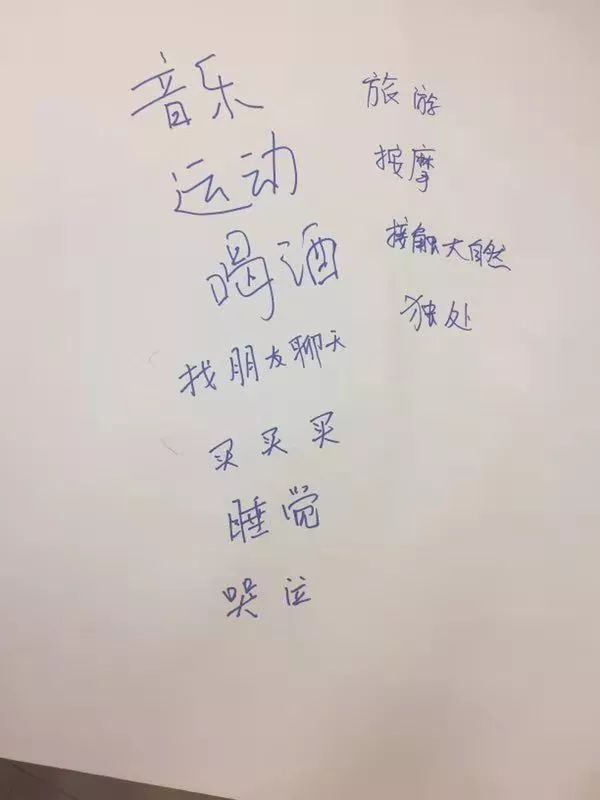 音乐
运动
喝酒
找朋友聊天
买买买
睡觉
哭泣
旅游
按摩
接触大自然
独处